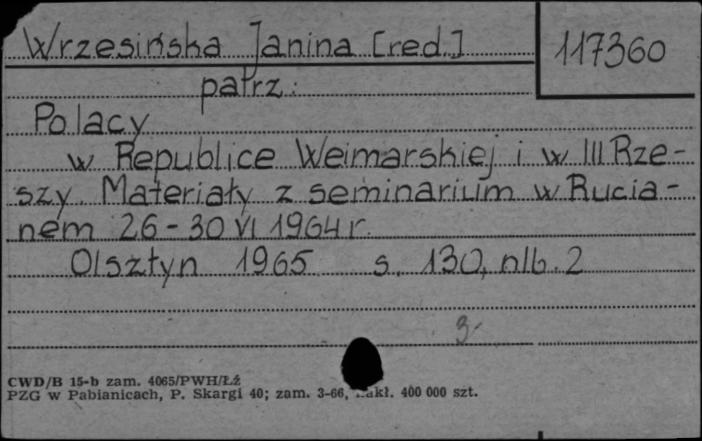 Wrzesińska Janina [red.]
117360
patrz:
Polacy
w Republice Weimarskiej i w III Rze-
szy. Materiały z seminarium w Rucia-
nem 26-30 VI 1964 r.
Olsztyn 1965 s. 130, nlb. 2
3-
CWD/B 15-b zam. 4065/PWH/Łź
PZG w Pabianicach, P. Skargi 40; zam. 3-66, nakł. 400 000 szt.